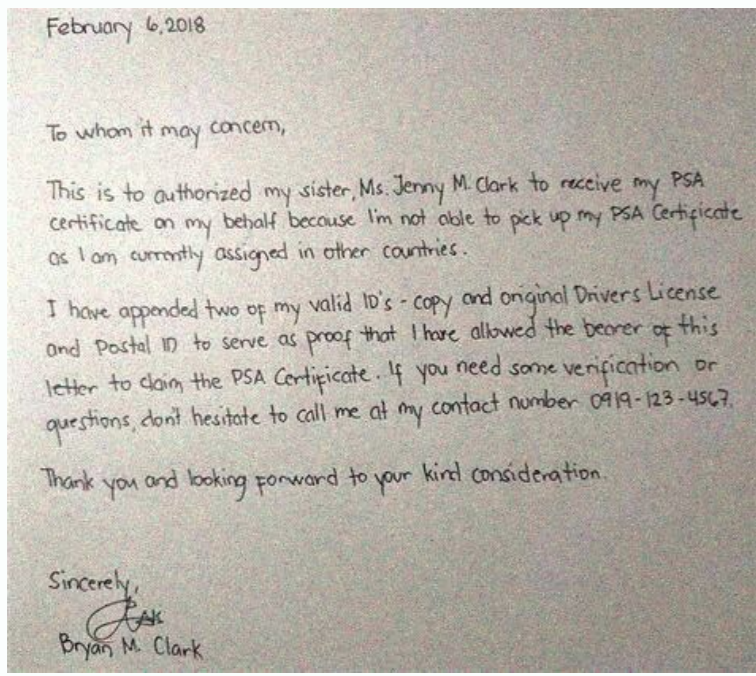 February 6, 2018
To whom it may concern,
This is to authorized my sister, Ms. Jenny M. Clark to receive my PSA
certificate on my behalf because I'm not able to pick up my PSA Certificate
as I am currently assigned in other countries.
I have appended two of my valid ID's - copy and original Drivers License
and Postal ID to serve as proof that I have allowed the bearer of this
letter to claim the PSA Certificate. If you need some verification or
questions, don't hesitate to call me at my contact number 0919-123-4567.
Thank you and looking forward to your kind consideration.
Sincerely,
Bryan M. Clark